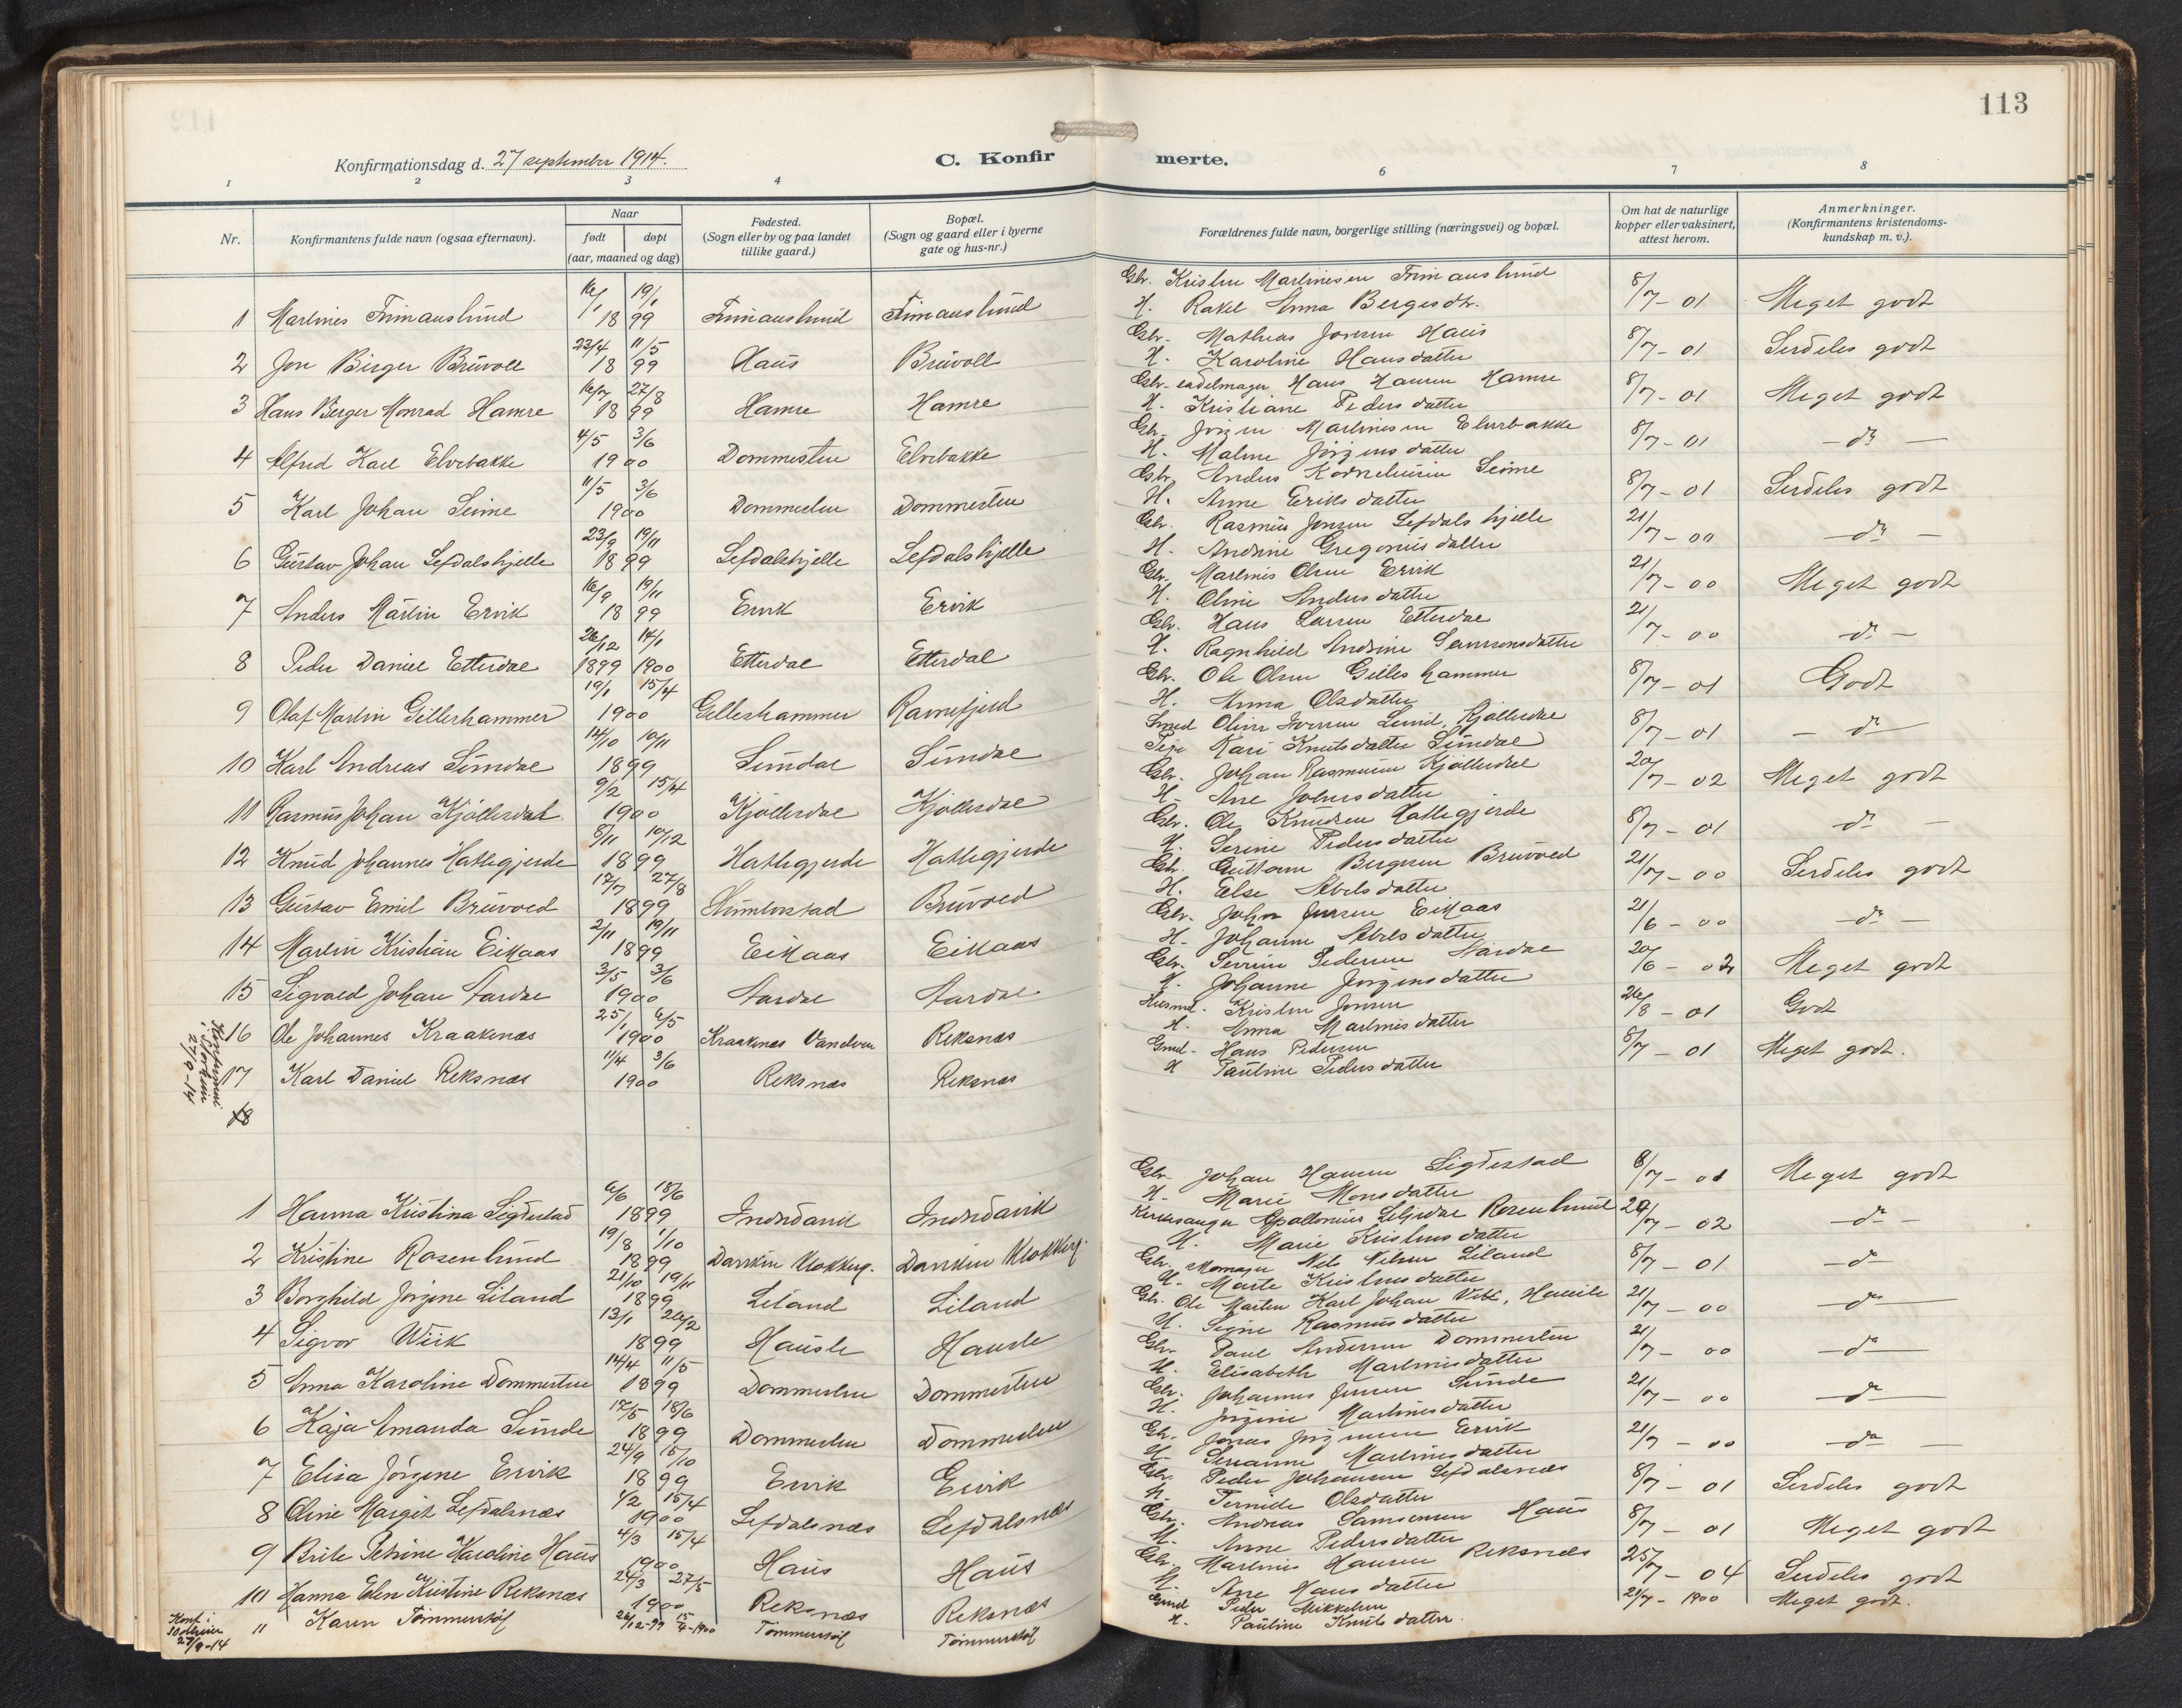 113
Konfirmationsdag d. 27 september 1914.
C. Konfirmerte.
1 2 3 4 6 7 8
Nr.
Konfirmantens fulde navn (ogsaa efternavn).
Naar
født
døpt
(aar, maaned og dag)
Fødested.
(Sogn eller by og paa landet
tillike gaard.)
Bopæl.
(Sogn og gaard eller i byerne
gate og hus-nr.)
Forældrenes fulde navn, borgerlige stilling (næringsvei) og bopæl.
Om hat de naturlige
kopper eller vaksinert,
attest herom.
Anmerkninger.
(Konfirmantens kristendoms-
kundskap m. v.).
1 Martines 16/1 19/1 1899 Gbr. Kristen Martinesen H. Rakel Anna Bergesdtr. 8/7-01 Meget godt
2 Jon Birger Brúvoll 23/4 11/5 1899 Haús Brúvoll Gbr. Mathias Jonsen Haús H. Karoline Hansdatter 8/7-01 Serdeles godt
3 Hans Birger Monrad Hamre 16/7 27/8 1899 Hamre Hamre Gbr. sadelmager Hans Hansen Hamre H. Kristiane Pedersdatter 8/7-01 Meget godt
4 Alfred Karl Elvebakke 4/5 3/6 1900 Dommesten Elvebakke Gbr. Jörgen Martinesen Elvebakke H. Malene Jörgensdatter 8/7-01 -do-
5 Karl Johan Seime 11/5 3/6 1900 Dommesten Dommesten Gbr. Anders Korneliusen Seime H. Anne Eriksdatter 8/7-01 Serdeles godt
6 Gústav Johan Lefdalshjelle 23/9 19/11 1899 Lefdalshjelle Lefdalshjelle Gbr. Rasmús Jensen Lefdalshjelle H. Andrine Gregoriusdatter 21/7-00 -do-
7 Anders Martin Ervik 16/9 19/11 1899 Ervik Ervik Gbr. Martinis Olsen Ervik H. Oline Andersdatter 21/7-00 Meget godt
8 Peder Daniel Etterdal 26/12 14/1 1899 1900 Etterdal Etterdal Gbr. Hans Larsen Etterdal H. Ragnhild Andrine Samsonsdatter 21/7-00 -do-
9 Olaf Martin Gilleshammer 19/1 15/4 1900 Gilleshammer Ravnefjerd Gbr. Ole Olsen Gilleshammer H. Anna Olsdatter 8/7-01 Godt
10 Karl Andreas Sündal 14/10 19/11 1899 Sündal Sündal Smed Oliver Iversen Lúnd, Kjöllesdal Pige Kari Knútsdatter Sündal 8/7-01 -do-
11 Rasmús Johan Kjöllesdal 9/2 15/4 1900 Kjöllesdal Kjöllesdal Gbr. Johan Rasmusen Kjöllesdal H. Ane Johnsdatter 20/7-02 Meget godt
12 Knúd Johannes Hatlegjerde 8/11 10/12 1899 Hatlegjerde Hatlegjerde Gbr. Ole Knudsen Hatlegjerde H. Serine Pedersdatter 8/7-01 -do-
13 Gústav Emil Brúvoed 17/7 27/8 1899 Brúvoed Gbr. Guttorm Bergesen Brúvoed H. Else Abelsdatter 21/7-00 Serdeles godt
14 Martin Kristian Eikaas 2/11 19/11 1899 Eikaas Eikaas Gbr. John Jensen Eikaas H. Johanne Abelsdatter 21/6-00 -do-
15 Sigvald Johan Aardal 3/5 3/6 1900 Aardal Aardal Gbr. Severin Pedersen Aardal H. Johanne Jörgensdatter 20/6-02 Meget godt
16 Ole Johannes Kraakenæs 25/1 6/5 1900 Kraakenæs Vandven Reksnæs Húsmd. Kristen Jonsen H. Anna Martinisdatter 26/8-01 Godt
17 Karl Daniel Reksnæs 11/4 3/6 1900 Reksnæs Reksnæs Gmd. Hans Pedersen H. Pauline Pedersdatter 8/7-01 Meget godt.
27/9-14
18
1 Hanna Kristina Sigdestad 6/6 18/6 1899 Indredavik Indredavik Gbr. Johan Hansen Sigdestad H. Marie Monsdatter 8/7-01 Meget godt
2 Kristine Rosenlúnd 19/8 1/10 1899 Daviken Klokkerg. Daviken Klokkerg. Kirkesanger Apollonius Liljedal Rosenlúnd H. Marie Kristensdatter 29/7-02 -do-
3 Borghild Jörgine Liland 21/10 19/11 1899 Liland Liland Gbr. Nils Nilsen Liland H. Marte Kristensdatter 8/7-01 -do-
4 Sigvor Wiik 13/1 26/2 1899 Haúsle Haúsle Gbr. Ole Martin Karl Johan Viik, Haúsle H. Signe Rasmúsdatter 21/7-00 -do-
5 Anna Karoline Dommesten 14/4 11/5 1899 Dommesten Dommesten Gbr. Paul Andersen Dommesten H. Elisabeth Martinisdatter 21/7-00 -do-
6 Kaja Amanda Súnde 17/5 18/6 1899 Dommesten Dommesten Gbr. Johannes Jensen Súnde H. Jörgine Martinisdatter 21/7-00 -do-
7 Elisa Jörgine Ervik 24/9 15/10 1899 Ervik Ervik Gbr. Jonas Jörgensen Ervik H. Serianne Martinisdatter 21/7-00 -do-
8 Oline Margit Lefdalsnæs 1/2 15/4 1900 Lefdalsnæs Lefdalsnæs Gbr. Peder Johansen Lefdalsnæs H. Olsdatter 8/7-01 Serdeles godt
9 Brite Petrine Karoline Haús 4/3 15/4 1900 Haús Haús Gbr. Andreas Samsonsen Haús H. Anne Pedersdatter 8/7-01 Meget godt
10 Hanna Elen Kristine Reksnæs 24/3 27/5 1900 Reksnæs Reksnæs Gbr. Martinis Hansen Reksnæs H. Ane Hansdatter 25/7-04 Serdeles godt
Konf. i 27/9-14
11 Karen Tömmerstöl 26/12-99 15/4-1900 Tömmerstöl Tömmerstöl Gmd. Peder Mikkelsen H. Pauline Knútsdatter. 21/7-1900 Meget godt.